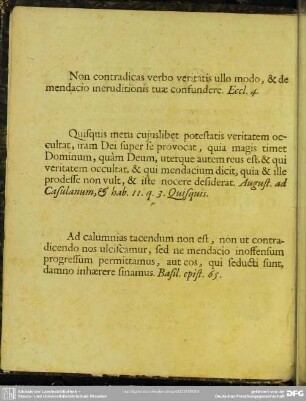 Non contradicas verbo veritatis ullo modo, & de
mendacio ineruditionis tuæ confundere. Eccl. 4.
Quisquis metu cujuslibet potestatis veritatem oc-
cultat, iram Dei super se provocat, quia magis timet
Dominum, quàm Deum, uterque autem reus est, & qui
veritatem occultat, & qui mendacium dicit, quia & ille
prodesse non vult, & iste nocere desiderat. August. ad
Casulanum, & hab. 11. q. 3. Quisquis.
Ad calumnias tacendum non est, non ut contra-
dicendo nos ulciscamur, sed ne mendacio inoffensum
progressum permittamus, aut eos, qui seducti sunt,
damno inhærere sinamus. Basil. epist. 65.
Sächsische Landesbibliothek -
Staats- und Universitätsbibliothek Dresden
gefördert von der
Deutschen Forschungsgemeinschaft
DFG